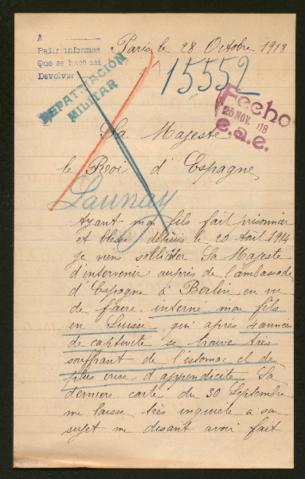 A
Pedir informes
Que se hace así
Devolver
Paris le 28 Octobre 1918
REPATRIACIÓN
MILITAR
15552
Fecho
25 NOV. 918
e.a.e.
Sa Majesté
le Roi d'Espagne
Launay
Ayant mon fils fait prisonnier
et blessé depuis le 20 Août 1914
je vien sollicter Sa Majesté
d'intervenir auprès de l'ambassade
d'Espagne à Berlin en vu
de faire interné mon fils
en Suisse qui après 4 années
de captivité se trouve très
souffrant de l'estomac et de
plus crise d'appendicite. Sa
dernière carte du 30 Septembre
me laisse très inquiète a son
sujet me disant avoir fait